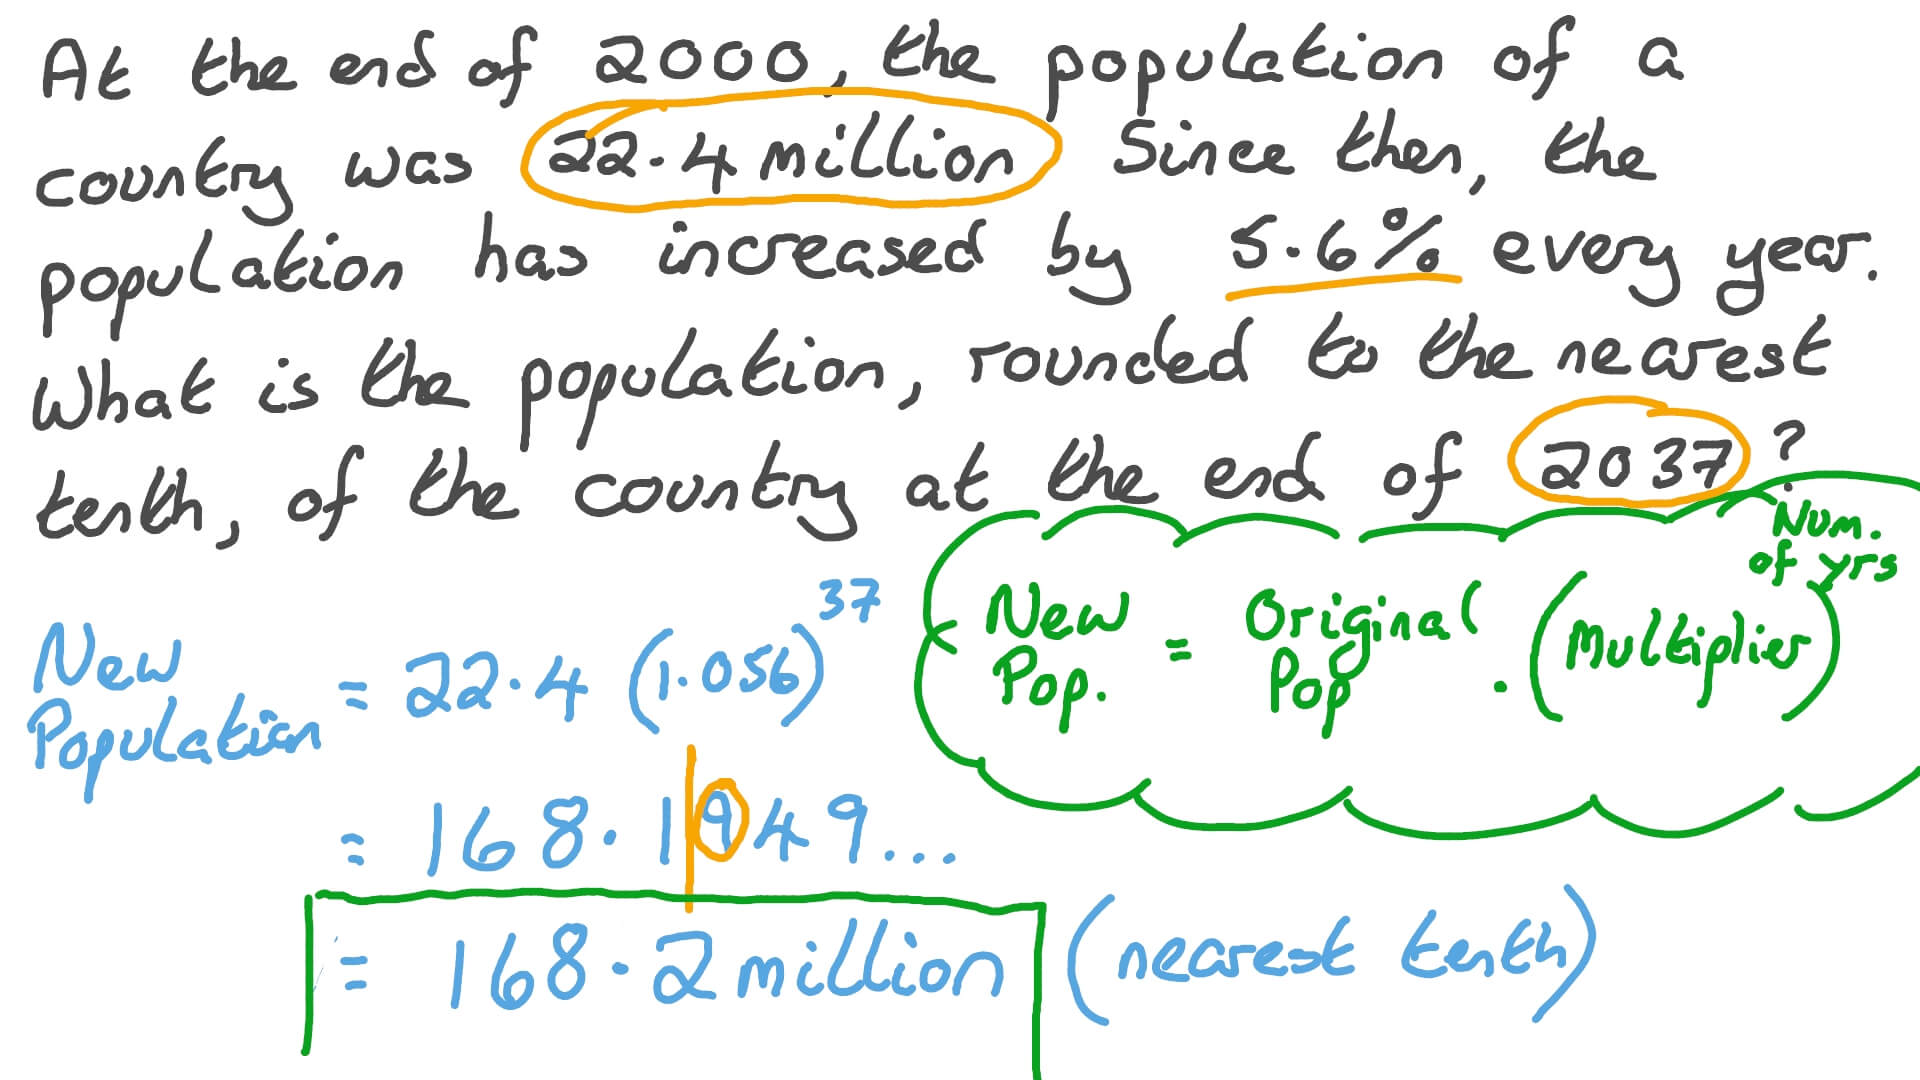 At the end of 2000, the population of a
country was 22.4 million Since then, the
population has increased by 5.6% every year.
What is the population, rounded to the nearest
tenth, of the country at the end of 2037?
New Population = 22.4 (1.056)^37
= 168.1949...
= 168.2 million (nearest tenth)
New Pop. = Original Pop . (Multiplier)
Num.
of yrs